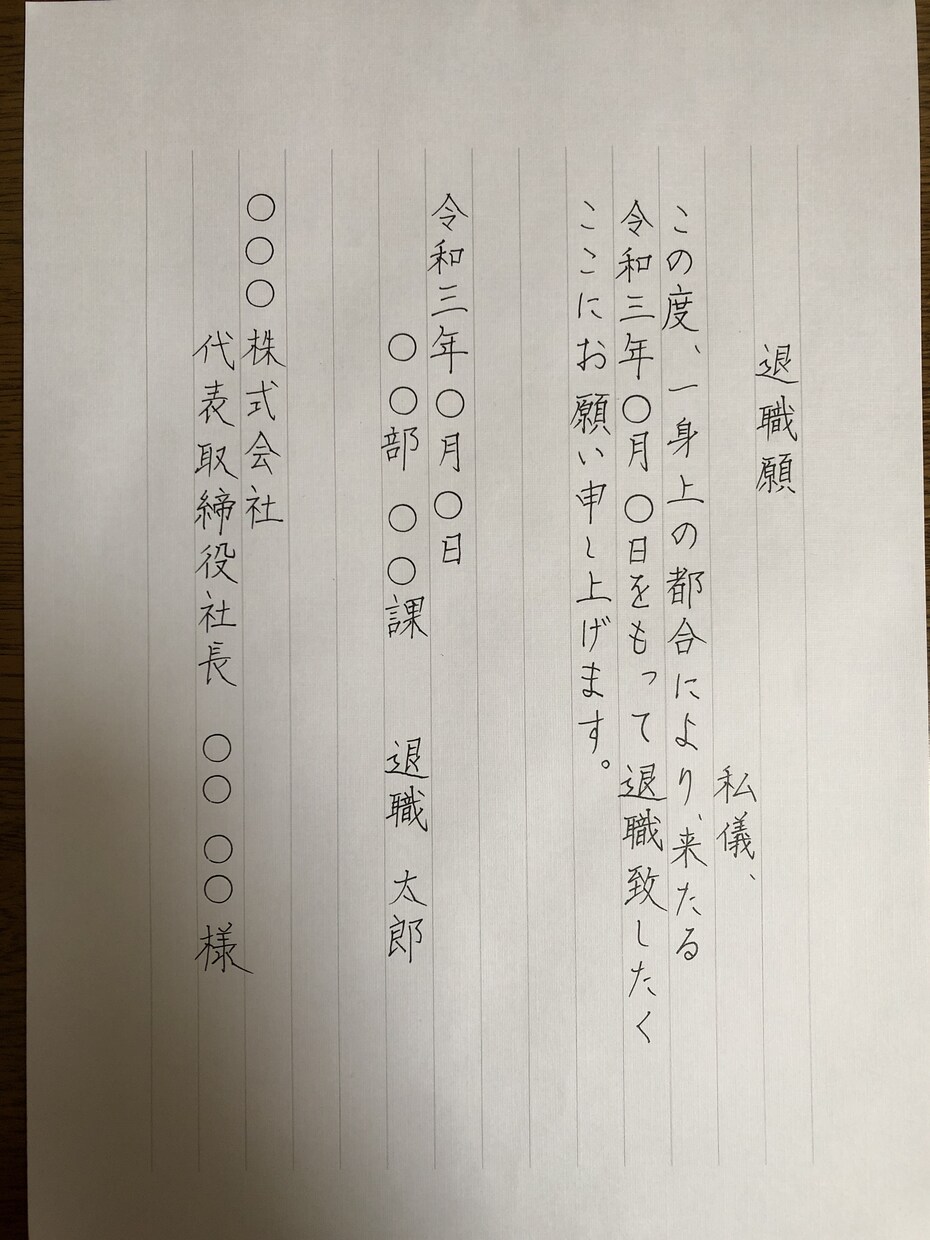 退職願
私儀、
この度、一身上の都合により、来たる
令和三年〇月〇日をもって退職致したく
ここにお願い申し上げます。
令和三年〇月〇日
〇〇部 〇〇課 退職 太郎
〇〇〇株式会社
代表取締役社長 〇〇 〇〇様